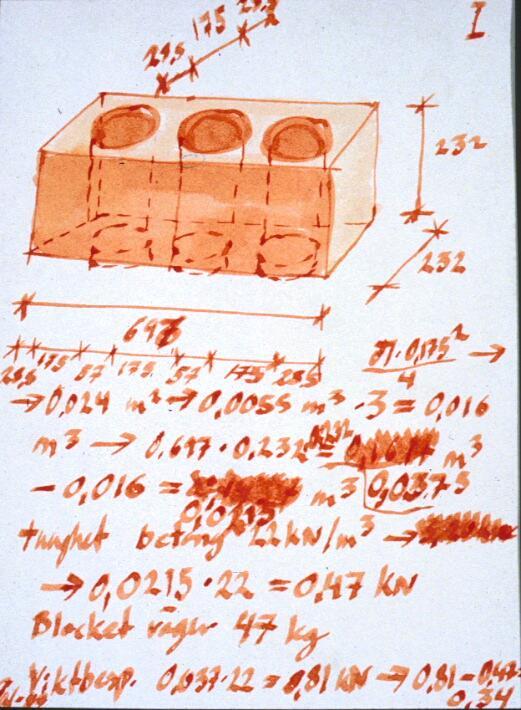 I
28,5 175 28,5
232
232
696
28,5 175 87 175 87 175 28,5
π·0,175² →
4
→ 0,024 m² → 0,0055 m³ · 3 = 0,016
m³ → 0,697 · 0,232 · 0,232 = m³
- 0,016 = m³ 0,0375
0,0215
tunghet betong 22 kN/m³ →
→ 0,0215 · 22 = 0,47 kN
Blocket väger 47 kg
Viktbesp. 0,037·22 = 0,81 kN → 0,81 - 0,47
0,34